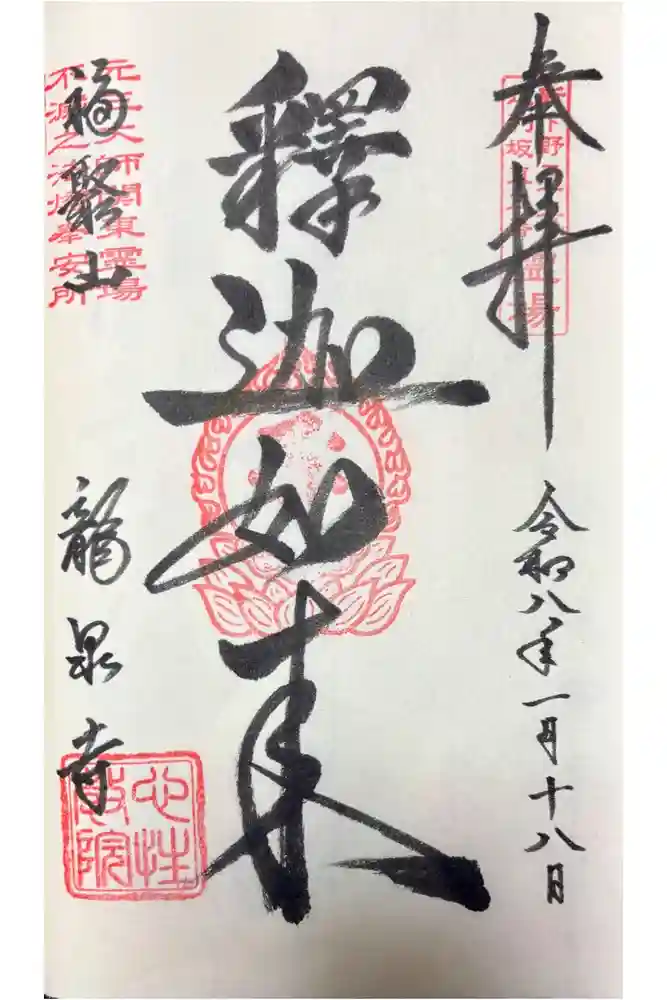 奉拝
令和八年一月十八日
釋迦如来
元三大師関東霊場
不滅之法燈奉安所
福聚山
龍泉寺